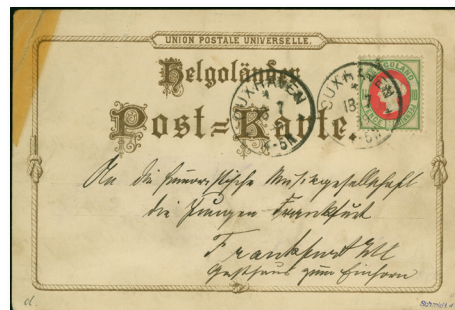 UNION POSTALE UNIVERSELLE.
Helgoländer
Post=Karte
HELGOLAND
CUXHAVEN
CUXHAVEN
18 7
4-5N
An die humoristische Musikgesellschaft
die Jungen Frankfurt
Frankfurt
Gasthaus zum Einhorn
d.